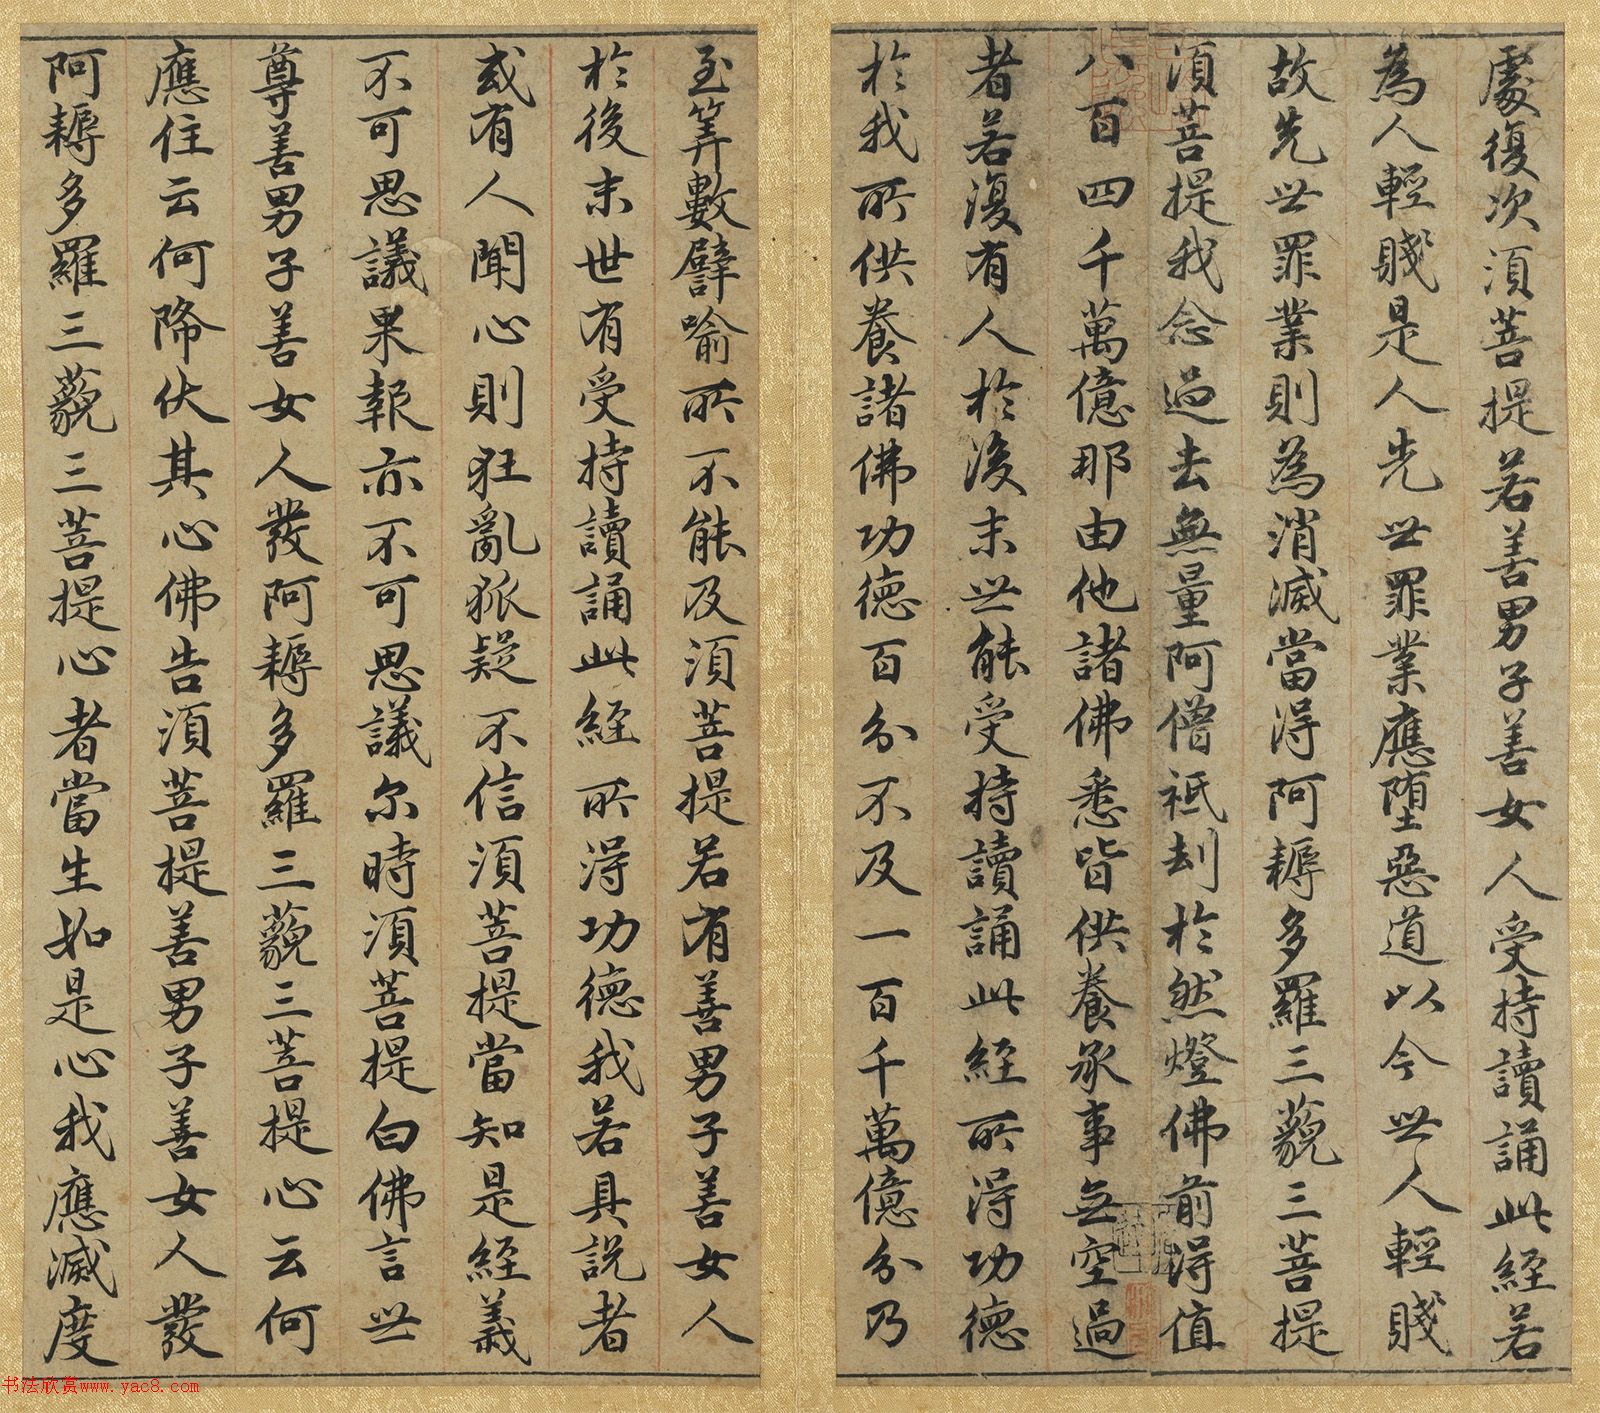 處復次須菩提若善男子善女人受持讀誦此經若
為人輕賤是人先世罪業應墮惡道以今世人輕賤
故先世罪業則為消滅當得阿耨多羅三藐三菩提
須菩提我念過去無量阿僧祇刦於然燈佛前得值
八百四千萬億那由他諸佛悉皆供養承事無空過
者若復有人於後末世能受持讀誦此經所得功德
於我所供養諸佛功德百分不及一百千萬億分乃
至筭數譬喻所不能及須菩提若有善男子善女人
於後末世有受持讀誦此經所得功德我若具說者
或有人聞心則狂亂狐疑不信須菩提當知是經義
不可思議果報亦不可思議尔時須菩提白佛言世
尊善男子善女人發阿耨多羅三藐三菩提心云何
應住云何降伏其心佛告須菩提善男子善女人發
阿耨多羅三藐三菩提心者當生如是心我應滅度
书法欣赏www.yac8.com